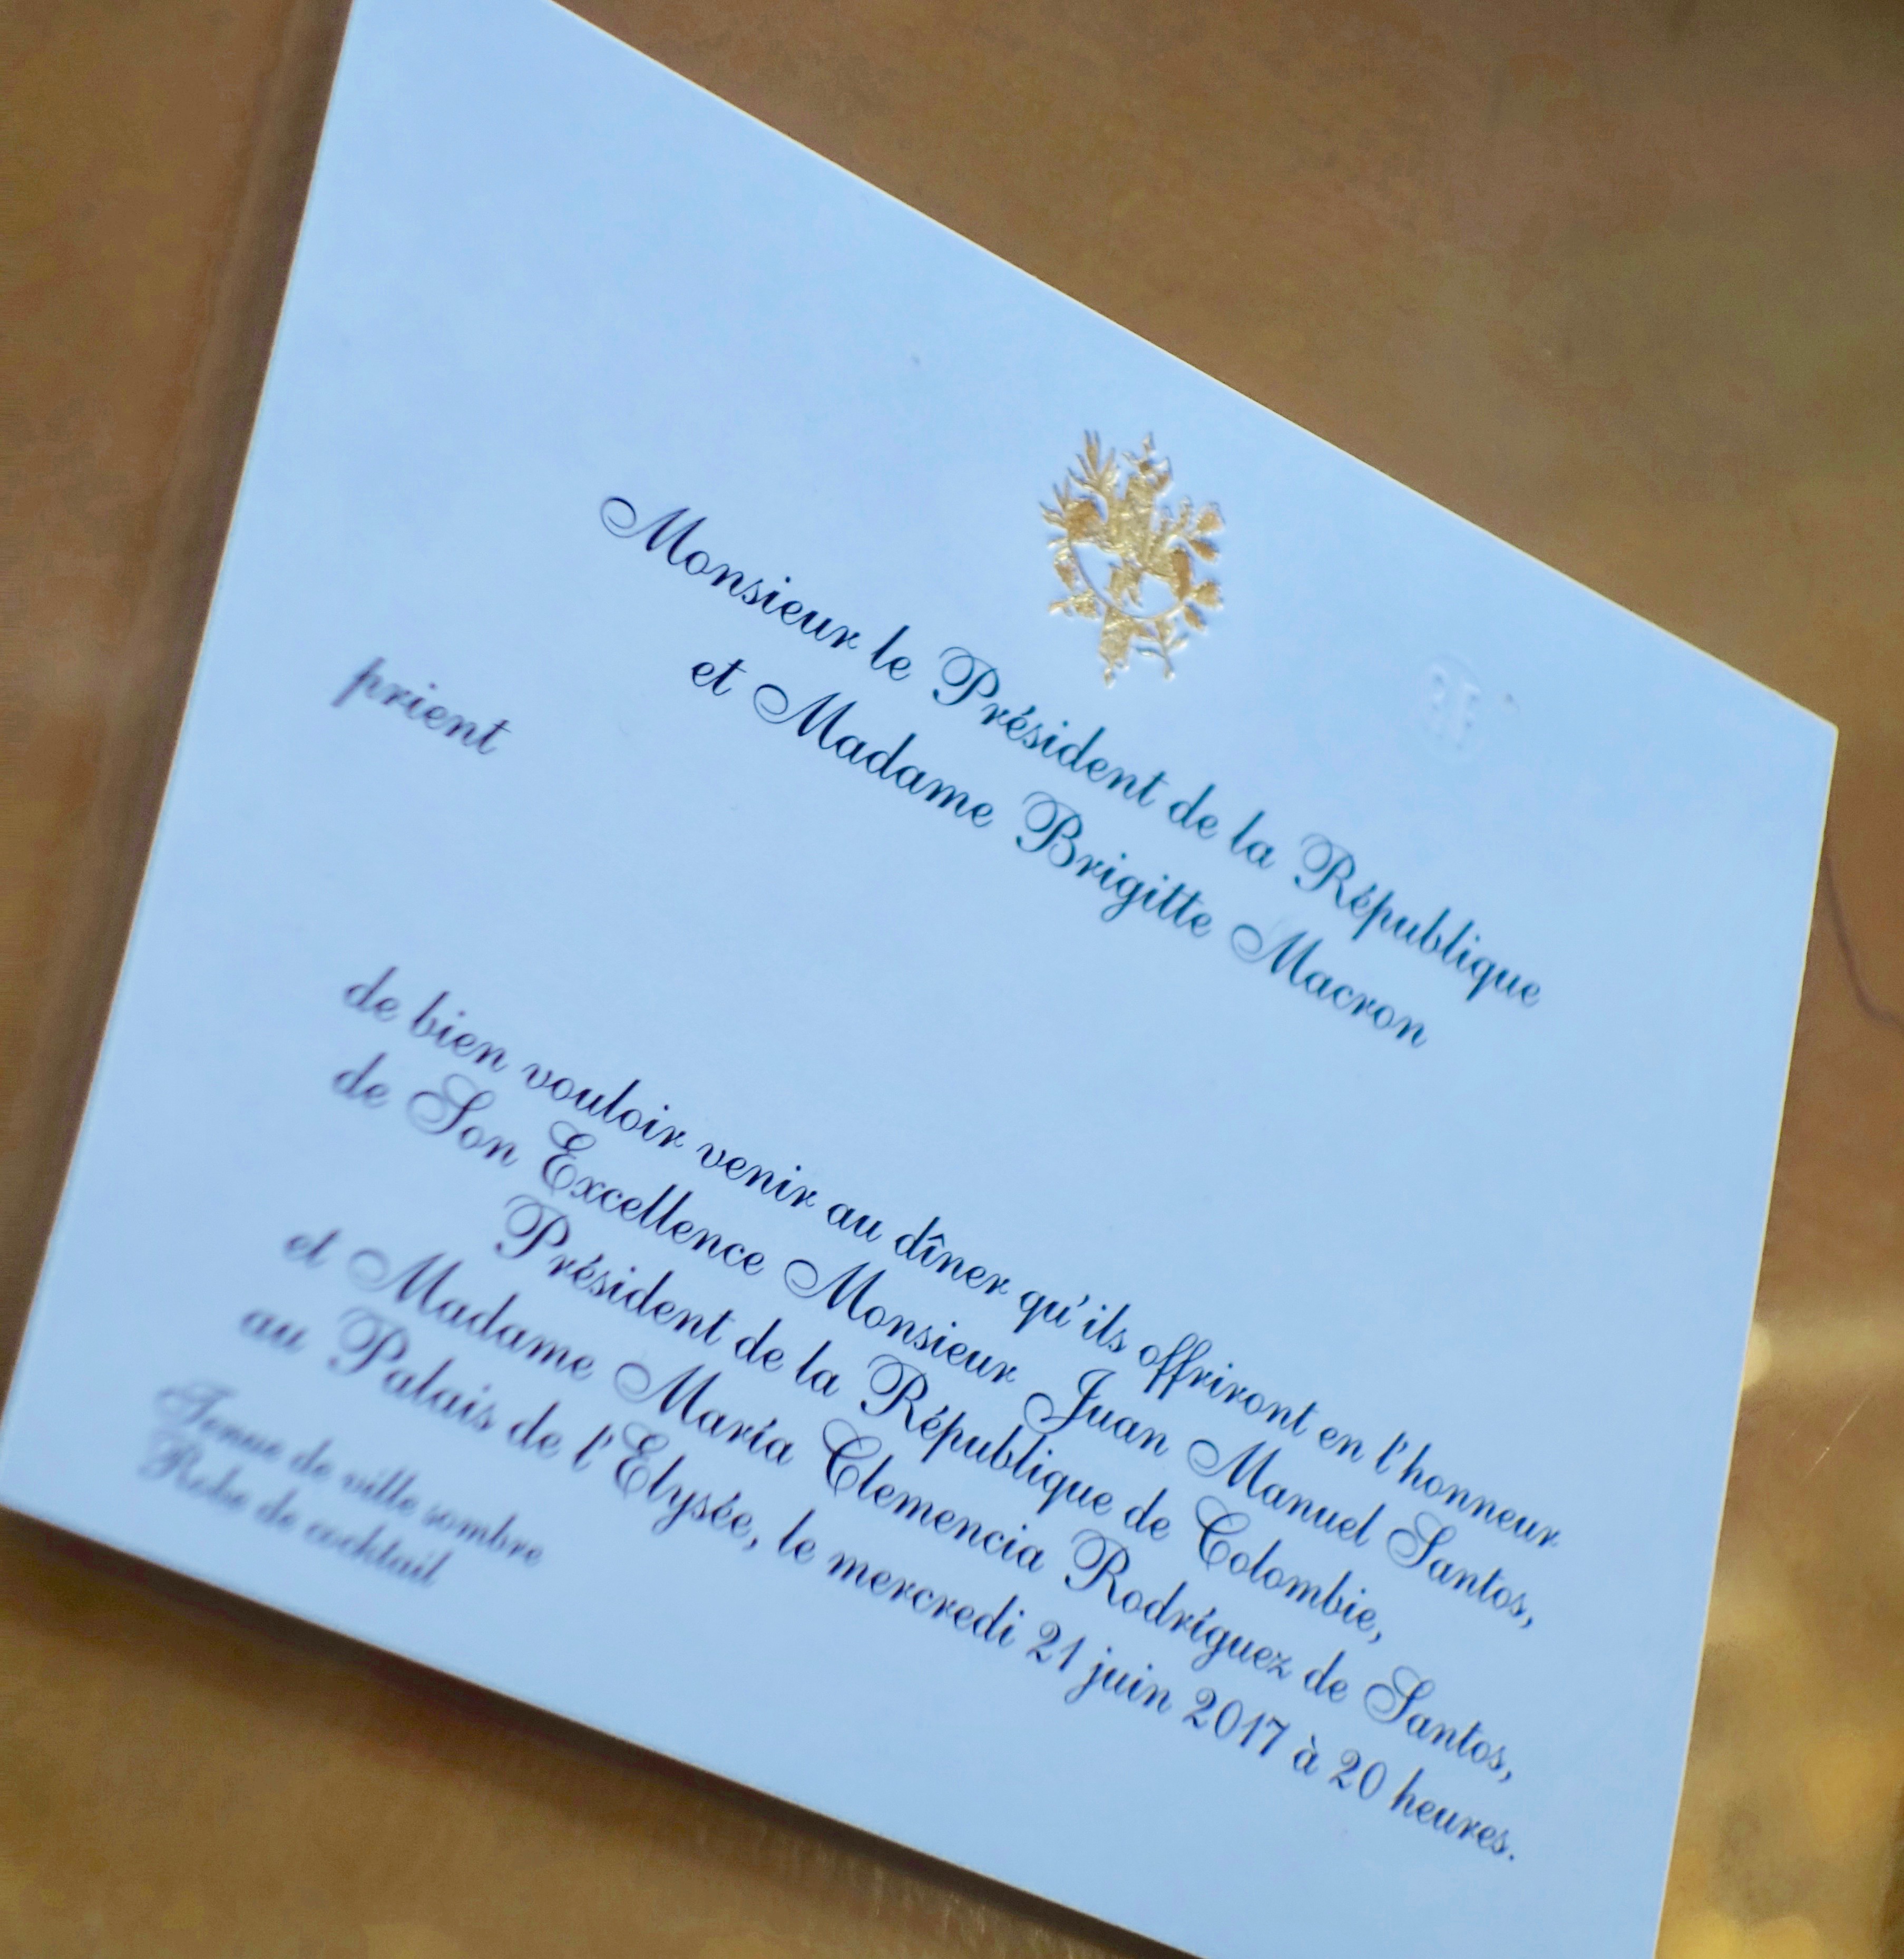 Monsieur le Président de la République
et Madame Brigitte Macron
prient
de bien vouloir venir au dîner qu'ils offriront en l'honneur
de Son Excellence Monsieur Juan Manuel Santos,
Président de la République de Colombie,
et Madame María Clemencia Rodríguez de Santos,
au Palais de l'Elysée, le mercredi 21 juin 2017 à 20 heures.
Tenue de ville sombre
Robe de cocktail